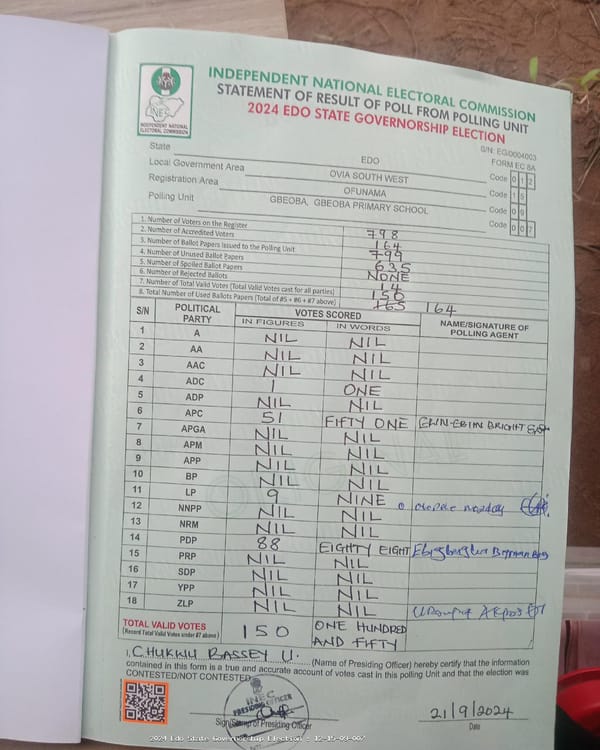 INDEPENDENT NATIONAL ELECTORAL COMMISSION
STATEMENT OF RESULT OF POLL FROM POLLING UNIT
2024 EDO STATE GOVERNORSHIP ELECTION
INEC
INDEPENDENT NATIONAL ELECTORAL COMMISSION
S/N: EG/0004003
FORM EC 8A
State EDO Code 0 1 2
Local Government Area OVIA SOUTH WEST Code 1 5
Registration Area OFUNAMA Code 0 9
Polling Unit GBEOBA, GBEOBA PRIMARY SCHOOL Code 0 0 7
1. Number of Voters on the Register 798
2. Number of Accredited Voters 164
3. Number of Ballot Papers Issued to the Polling Unit 799
4. Number of Unused Ballot Papers 635
5. Number of Spoiled Ballot Papers NONE
6. Number of Rejected Ballots 14
7. Number of Total Valid Votes (Total Valid Votes cast for all parties) 150
8. Total Number of Used Ballots Papers (Total of #5 + #6 + #7 above) 164
S/N POLITICAL PARTY VOTES SCORED NAME/SIGNATURE OF POLLING AGENT
IN FIGURES IN WORDS
1 A NIL NIL
2 AA NIL NIL
3 AAC NIL NIL
4 ADC 1 ONE
5 ADP NIL NIL
6 APC 51 FIFTY ONE BRIGHT
7 APGA NIL NIL
8 APM NIL NIL
9 APP NIL NIL
10 BP NIL NIL
11 LP 9 NINE
12 NNPP NIL NIL
13 NRM NIL NIL
14 PDP 88 EIGHTY EIGHT
15 PRP NIL NIL
16 SDP NIL NIL
17 YPP NIL NIL
18 ZLP NIL NIL
TOTAL VALID VOTES 150 ONE HUNDRED AND FIFTY
(Record Total Valid Votes under #7 above)
I, CHUKWU BASSEY U. (Name of Presiding Officer) hereby certify that the information
contained in this form is a true and accurate account of votes cast in this polling Unit and that the election was
CONTESTED/NOT CONTESTED
INEC
PRESIDING OFFICER
Sign/Stamp of Presiding Officer
21/9/2024
Date
2024 Edo State Governorship Election - 12-15-09-007